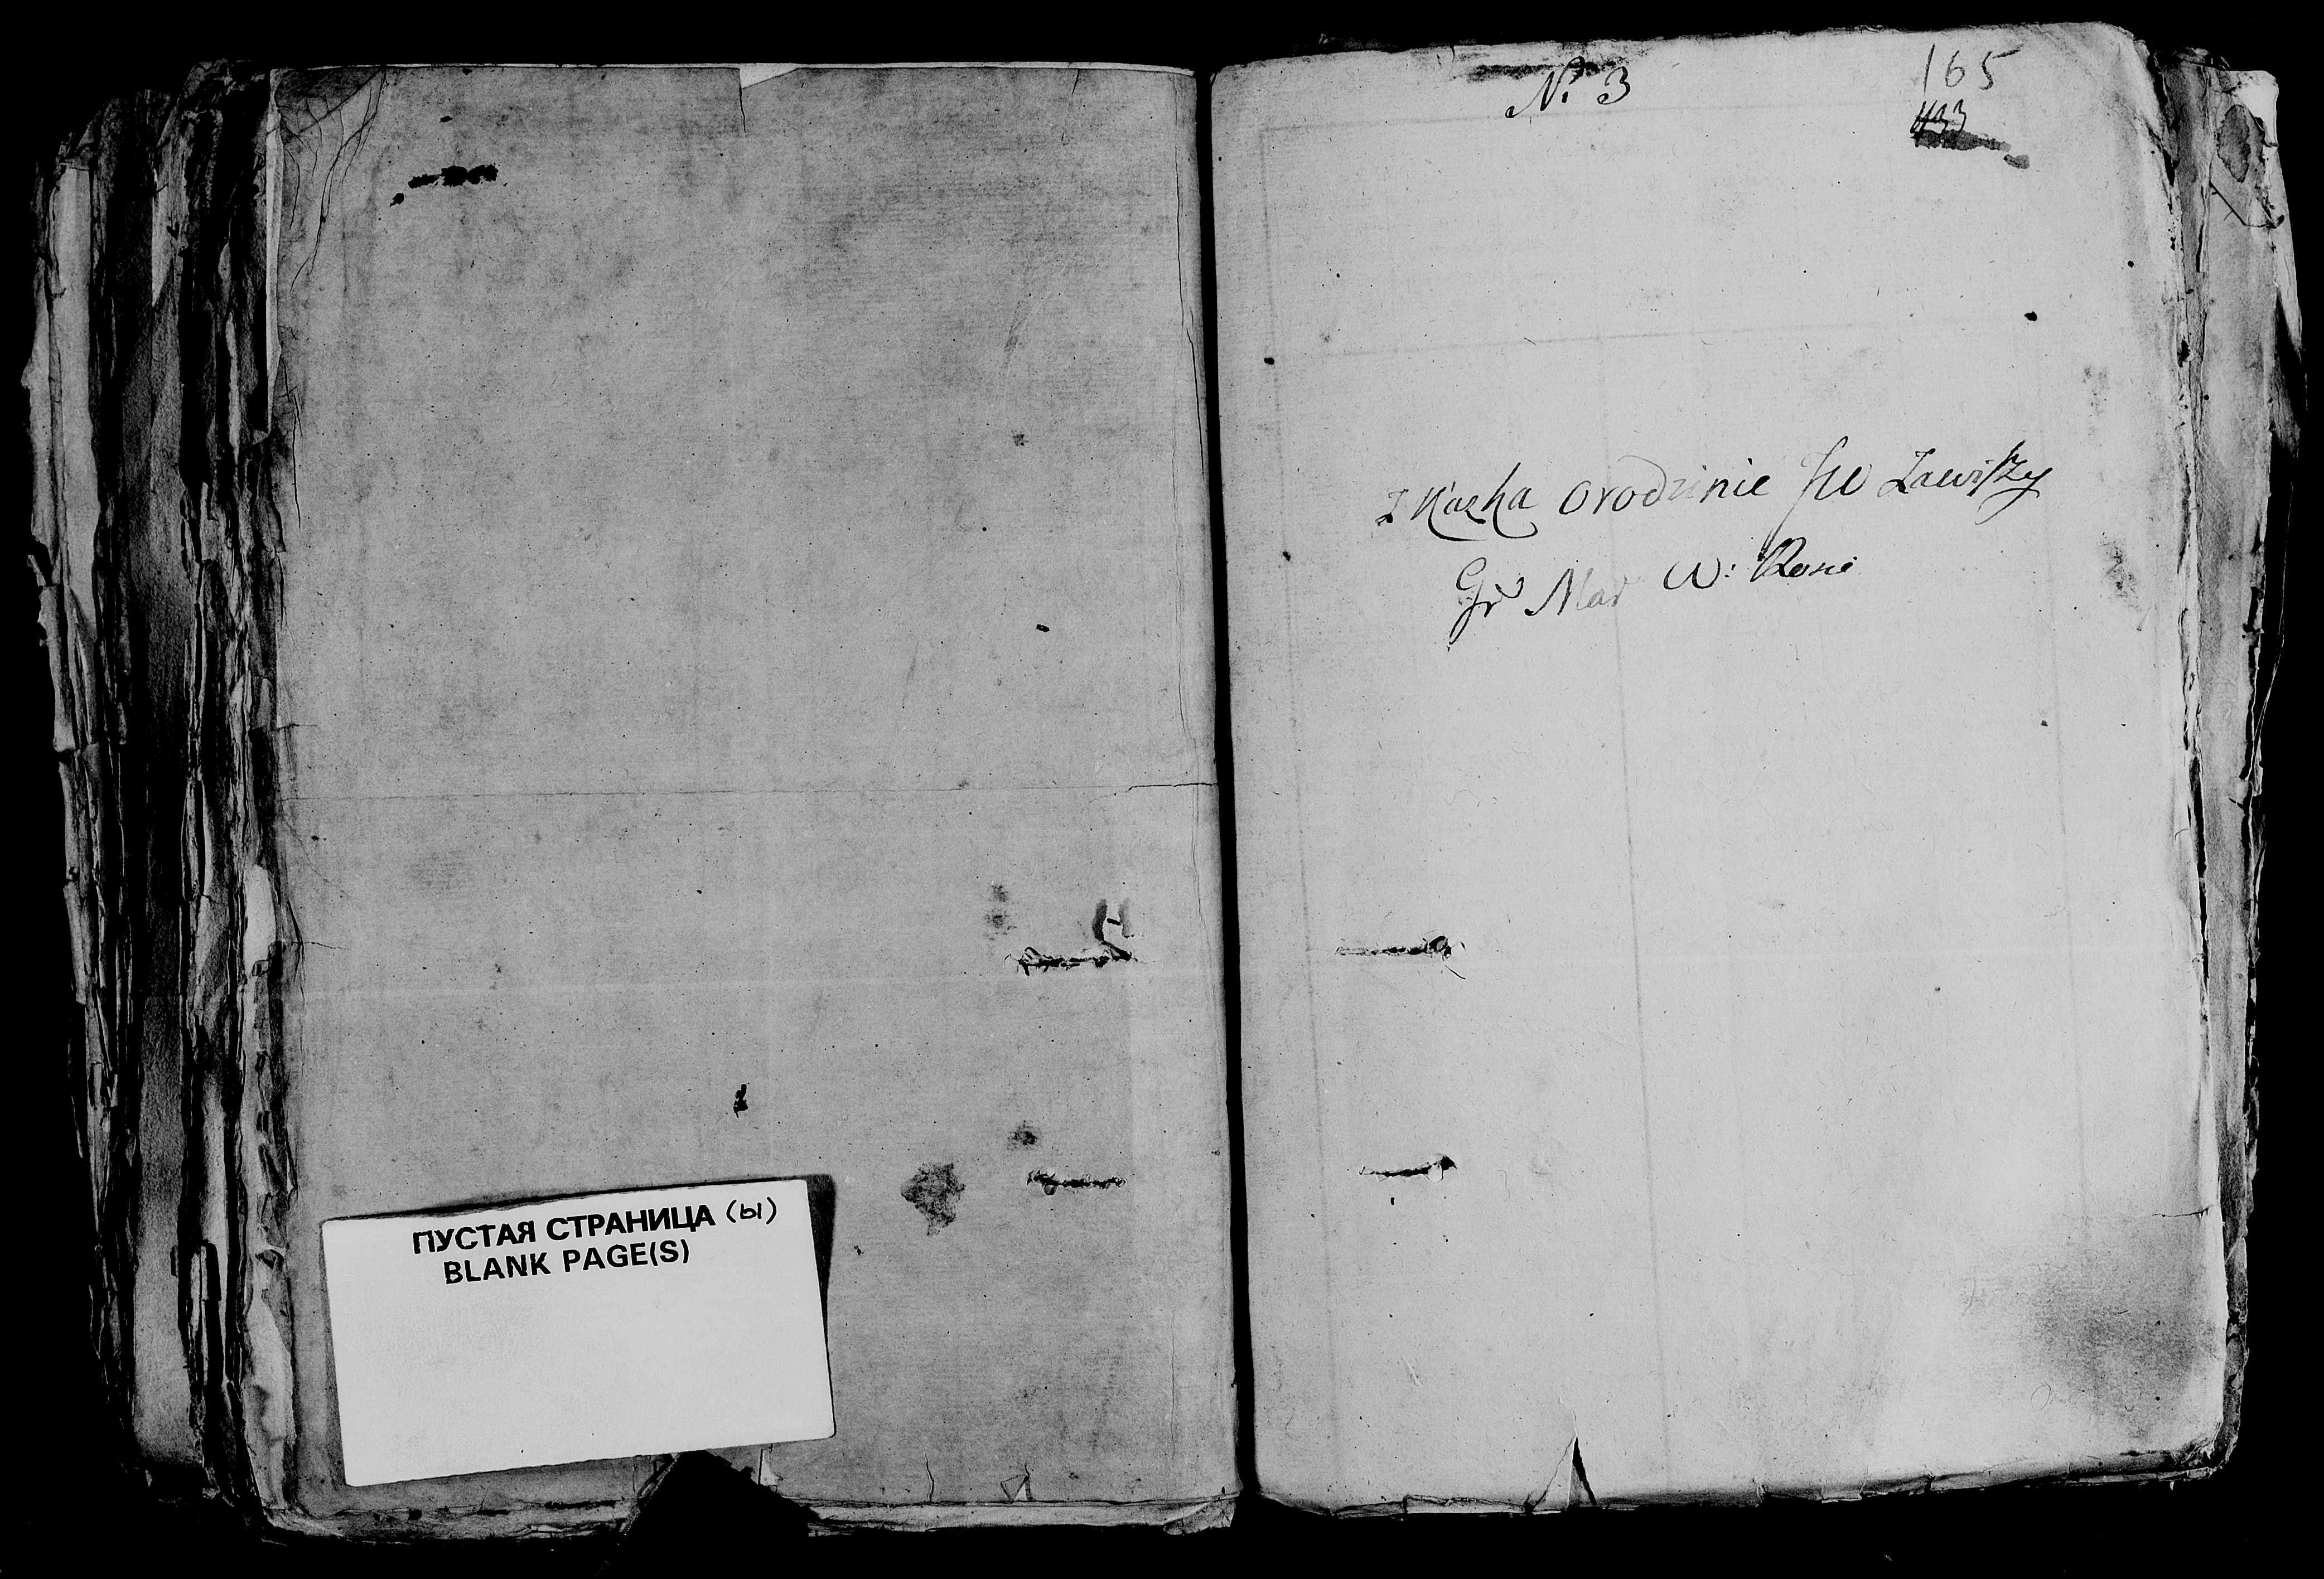 ПУСТАЯ СТРАНИЦА (ы)
BLANK PAGE(S)
N. 3
165
433
Skaska orodzinie JW Zawiszy
Gr Mar W: